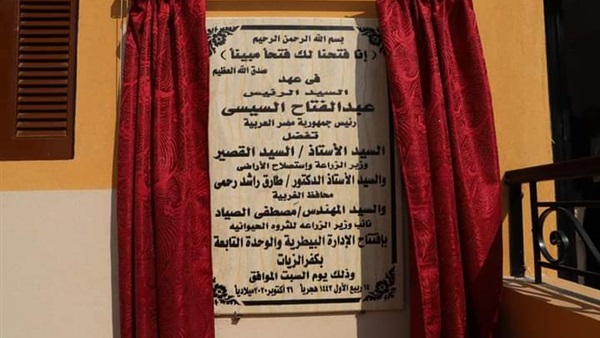 بسم الله الرحمن الرحيم
(إنا فتحنا لك فتحاً مبيناً)
صدق الله العظيم
فى عهد
السيد الرئيس
عبدالفتاح السيسى
رئيس جمهورية مصر العربية
تفضل
السيد الأستاذ / السيد القصير
وزير الزراعة وإستصلاح الأراضى
والسيد الأستاذ الدكتور/ طارق راشد رحمى
محافظ الغربية
والسيد المهندس/مصطفى الصياد
نائب وزير الزراعه للثروه الحيوانيه
بإفتتاح الإدارة البيطرية والوحدة التابعة
بكفرالزيات
وذلك يوم السبت الموافق
١٤ ربيع الأول ١٤٤٢ هجرياً ٣١ أكتوبر ٢٠٢٠ ميلادياً